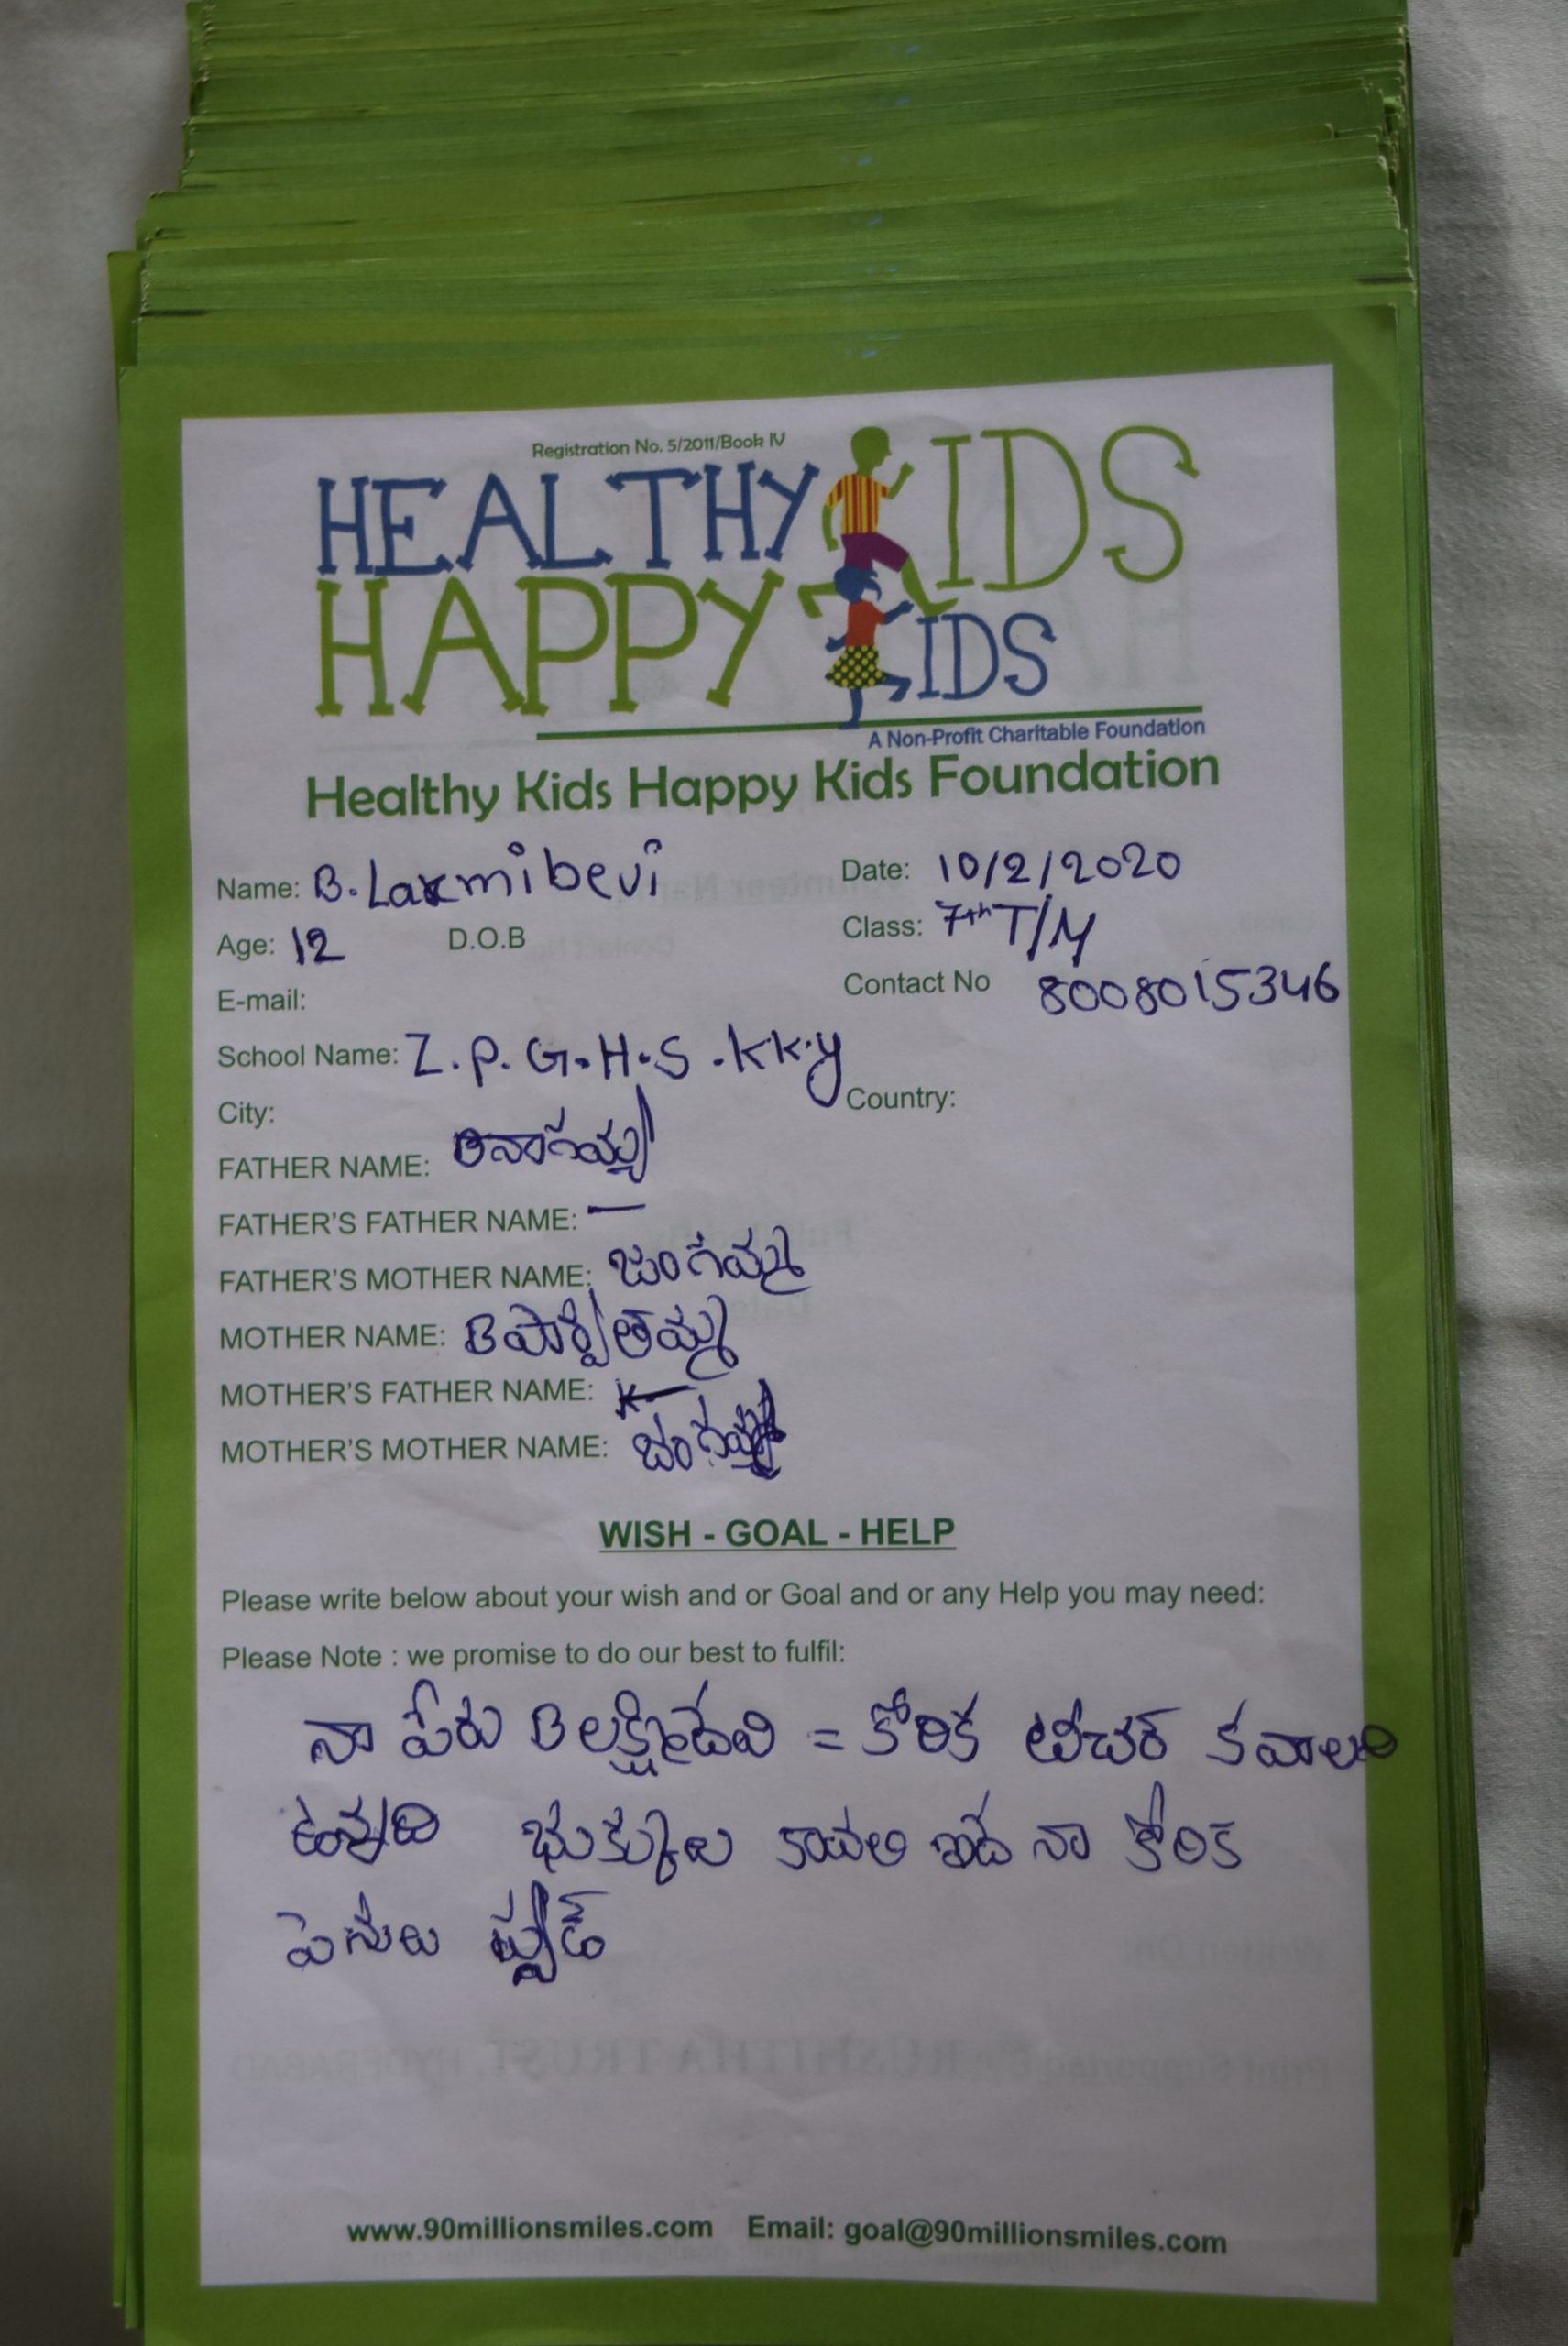 Registration No. 5/2011/Book IV
HEALTHY KIDS
HAPPY KIDS
A Non-Profit Charitable Foundation
Healthy Kids Happy Kids Foundation
Name: B. Laxmibevi Date: 10/2/2020
Age: 12 D.O.B Class: 7th T/M
E-mail: Contact No 8008015346
School Name: Z.P.G.H.S.KK.y
City: Country:
FATHER NAME: B నాగయ్య
FATHER'S FATHER NAME: —
FATHER'S MOTHER NAME: జంగమ్మ
MOTHER NAME: B పార్వతమ్మ
MOTHER'S FATHER NAME:
MOTHER'S MOTHER NAME: జంగమ్మ
WISH - GOAL - HELP
Please write below about your wish and or Goal and or any Help you may need:
Please Note : we promise to do our best to fulfil:
నా పేరు B లక్ష్మిదేవి = కోరిక టీచర్ కవాలని
ఉన్నది భుక్కుల కావలి ఇదే నా కోరిక
పెనులు
www.90millionsmiles.com Email: goal@90millionsmiles.com